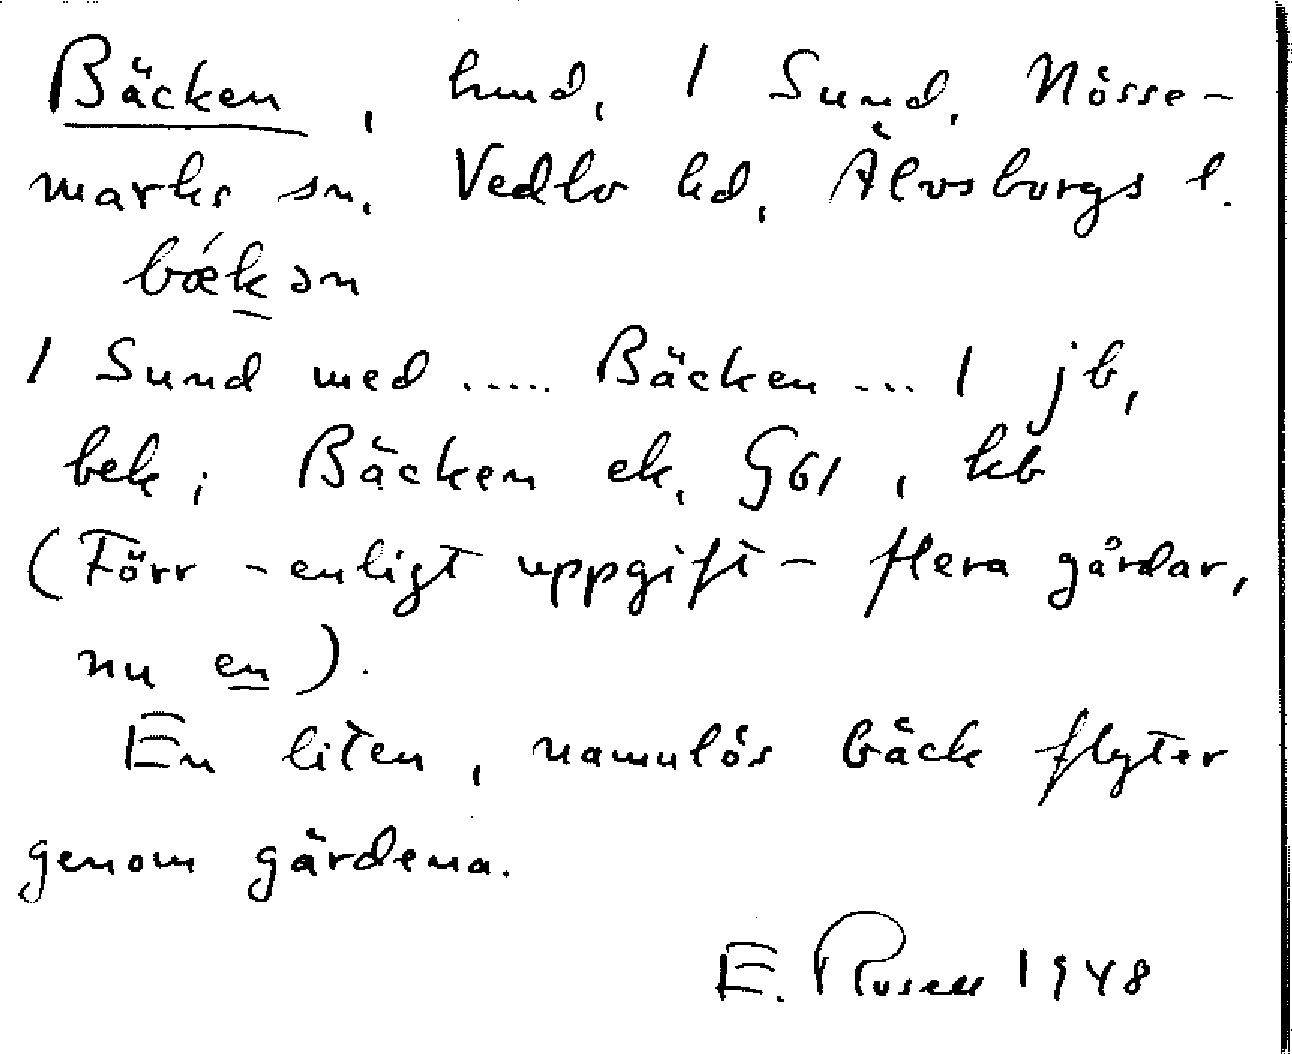 Bäcken, hmd, 1 Sund, Nösse-
marks sn, Vedbo hd, Älvsborgs l.
bǽkən
1 Sund med ..... Bäcken ... 1 jb,
bek; Bäcken ek, G61, kb
(Förr - enligt uppgift - flera gårdar,
nu en).
En liten, namnlös bäck flyter
genom gärdena.
E. Rosell 1948